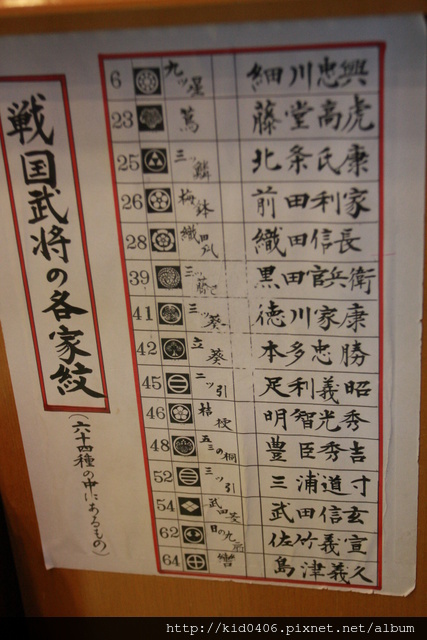 戦国武将の各家紋
(六十四種の中にあるもの)
6 九ッ星 細川忠興
23 蔦 藤堂高虎
25 三ッ鱗 北条氏康
26 梅鉢 前田利家
28 織田瓜 織田信長
39 三ッ藤巴 黒田官兵衛
41 三ッ葵 徳川家康
42 立葵 本多忠勝
45 二ッ引 足利義昭
46 桔梗 明智光秀
48 五三の桐 豊臣秀吉
52 三ッ引 三浦道寸
54 武田菱 武田信玄
62 日の丸扇 佐竹義宣
64 轡 島津義久
http://kid0406.pixnet.net/album